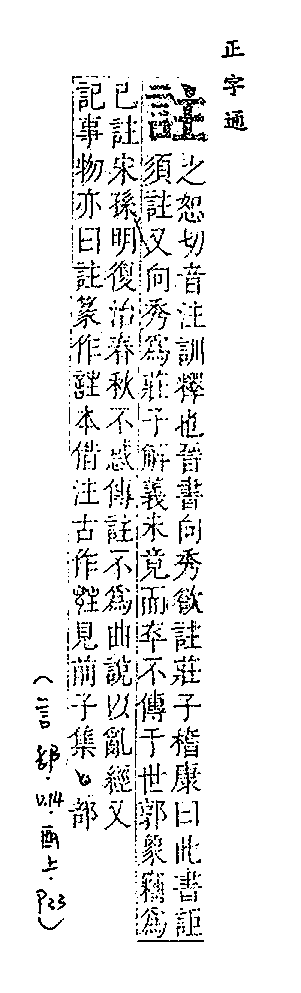 正字通
註
之恕切音注訓釋也晉書向秀欲註莊子嵇康曰此書詎
須註又向秀爲莊子解義未竟而卒不傳于世郭象竊爲
已註宋孫明復治春秋不惑傳註不爲曲說以亂經又
記事物亦曰註篆作註本借注古作見前子集部
(言部.U.14.酉上.P23)